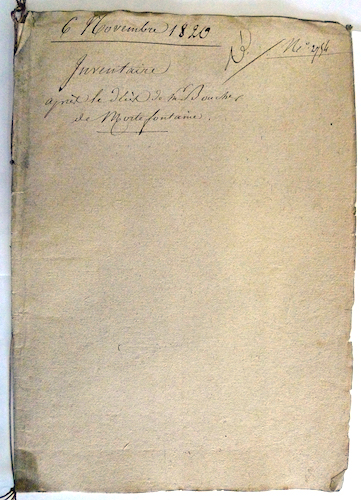 6 Novembre 1820
N.º
Inventaire
après le décès de M. Boucher
de Mortefontaine.